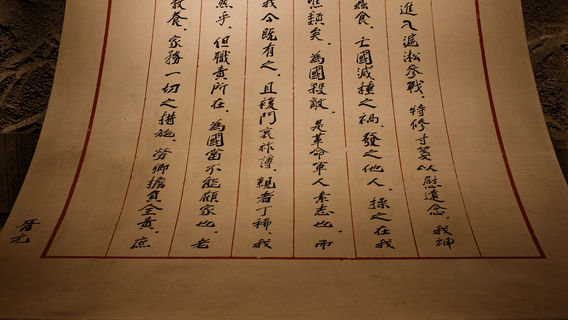 進入滬淞參戰，特修寸箋以慰遠念。我神
蠶食，亡國滅種之禍，發之他人，操之在我
噍類矣。為國殺敵，是革命軍人素志也。而
我今既有之，且後門衰祚薄，親者丁稀，我
然乎，但職責所在，為國當不能顧家也。老
教養，家務一切之措施，勞卿擔負全責，庶
晉元